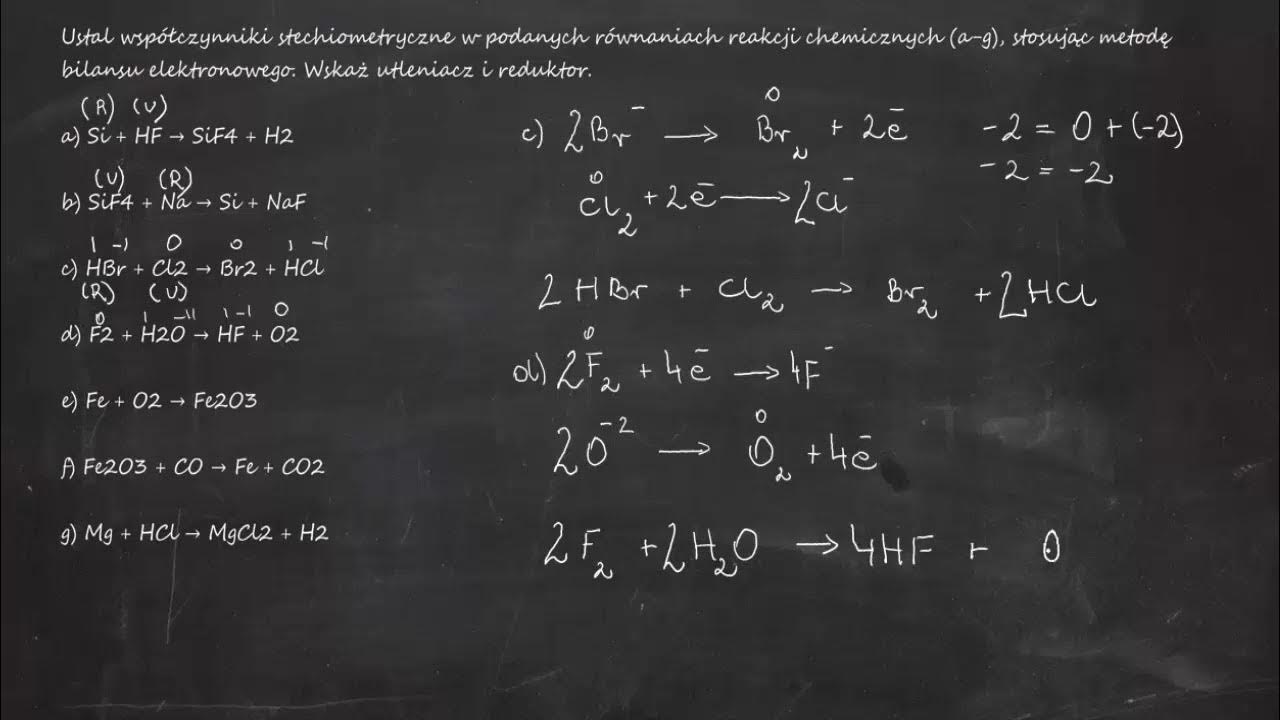 Ustal współczynniki stechiometryczne w podanych równaniach reakcji chemicznych (a-g), stosując metodę
bilansu elektronowego. Wskaż utleniacz i reduktor.
(R) (U)
a) Si + HF → SiF4 + H2
(U) (R)
b) SiF4 + Na → Si + NaF
1 -1 0 0 1 -1
c) HBr + Cl2 → Br2 + HCl
(R) (U)
0 1 -11 1 -1 0
d) F2 + H2O → HF + O2
e) Fe + O2 → Fe2O3
f) Fe2O3 + CO → Fe + CO2
g) Mg + HCl → MgCl2 + H2
0
c) 2Br⁻ → Br₂ + 2e̅ -2 = 0 + (-2)
-2 = -2
0
Cl₂ + 2e̅ → 2Cl⁻
2HBr + Cl₂ → Br₂ + 2HCl
0
d) 2F₂ + 4e̅ → 4F⁻
0
2O⁻² → O₂ + 4e̅
2F₂ + 2H₂O → 4HF + O